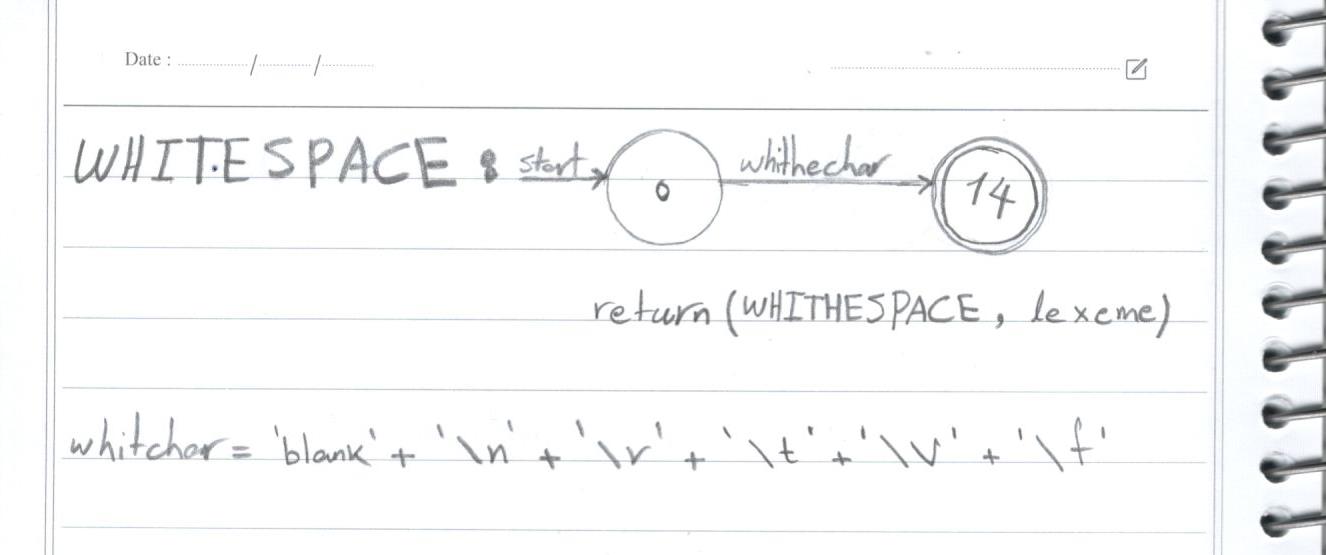 Date : ............../............/............
WHITESPACE : start 0 whithechar 14
return (WHITHESPACE, lexeme)
whitchar = 'blank' + '\n' + '\r' + '\t' + '\v' + '\f'